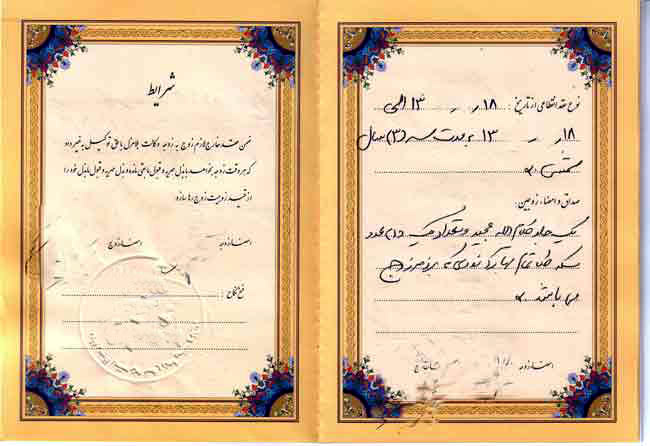 نوع عقد انقطاعی از تاریخ : ۱۸ / / ۱۳ الی
۱۸ / / ۱۳ به مدت سه (۳) سال
شمسی
صداق و امضاء زوجین:
یک جلد کلام الله مجید و تعداد یک (۱) عدد
سکه طلا تمام بهار آزادی که بر ذمه زوج
می باشد
امضاء زوجه
امضاء زوج
شرایط
ضمن عقد خارج لازم زوج به زوجه وکالت بلاعزل با حق توکیل به غیر داد
که هر وقت زوجه بخواهد با بذل مهریه و قبول مابقی مانده و بذل مهریه و قبول مابذل خود را
از قید زوجیت زوج رها سازد
امضاء زوجه
امضاء زوج
فسخ نکاح :